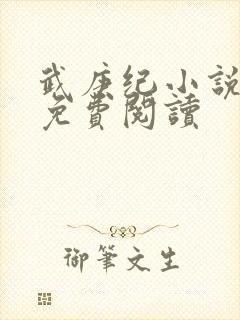 武庚纪小説
免費閱讀
御筆文生